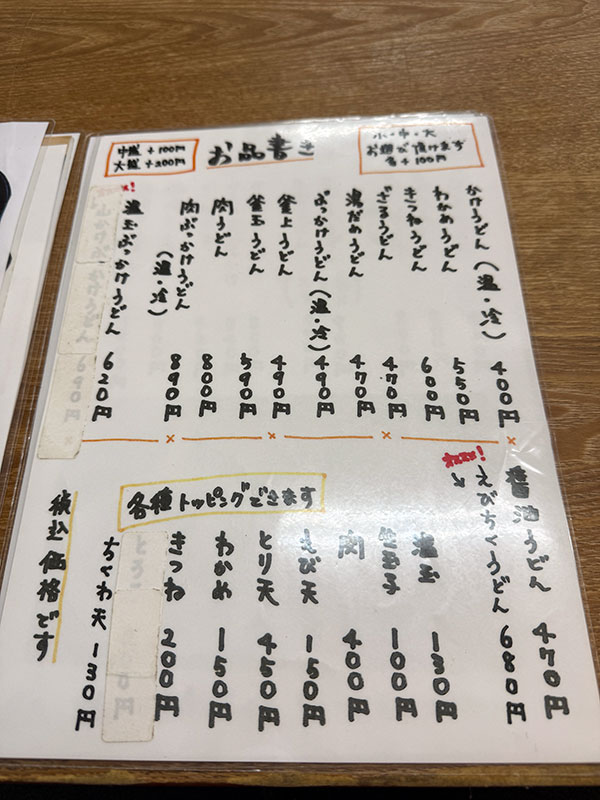 お品書き
中盛 +100円
大盛 +200円
小・中・大
お選び頂けます
各+100円
かけうどん(温・冷) 400円
わかめうどん 550円
きつねうどん 600円
ざるうどん 470円
湯だめうどん 470円
ぶっかけうどん(温・冷) 490円
釜上うどん 490円
釜玉うどん 590円
肉うどん 800円
肉ぶっかけうどん(温・冷) 890円
温玉ぶっかけうどん 620円
山かけぶっかけうどん 690円
醤油うどん 470円
えびちくうどん 680円
各種トッピングできます
温玉 130円
生玉子 100円
肉 400円
えび天 150円
とり天 450円
わかめ 150円
きつね 200円
ちくわ天 130円
税込価格です